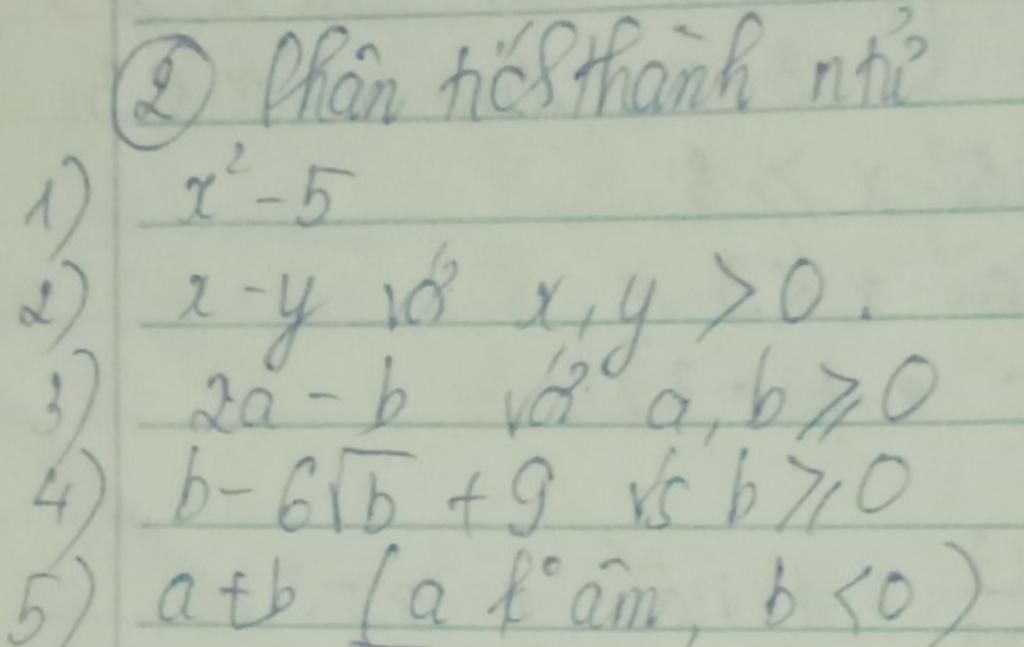 ② Phân tích thành ntử
1) x² - 5
2) x - y với x, y > 0.
3) 2a - b với a, b ⩾ 0
4) b - 6√b + 9 vs b ⩾ 0
5) a + b (a k° âm, b < 0)